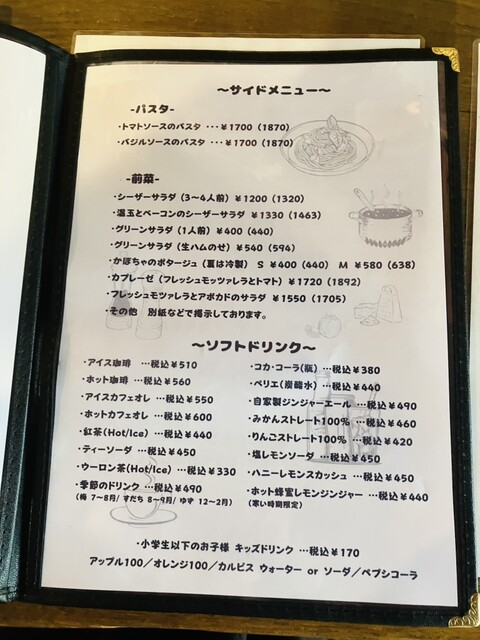 ～サイドメニュー～
-パスタ-
・トマトソースのパスタ ・・・￥1700（1870）
・バジルソースのパスタ ・・・￥1700（1870）
-前菜-
・シーザーサラダ（3～4人前）￥1200（1320）
・温玉とベーコンのシーザーサラダ ￥1330（1463）
・グリーンサラダ（1人前）￥400（440）
・グリーンサラダ（生ハムのせ）￥540（594）
・かぼちゃのポタージュ（夏は冷製） S ￥400（440） M ￥580（638）
・カプレーゼ（フレッシュモッツァレラとトマト）￥1720（1892）
・フレッシュモッツァレラとアボカドのサラダ ￥1550（1705）
・その他 別紙などで掲示しております。
～ソフトドリンク～
・アイス珈琲 …税込￥510
・ホット珈琲 …税込￥560
・アイスカフェオレ …税込￥550
・ホットカフェオレ …税込￥600
・紅茶（Hot/Ice） …税込￥440
・ティーソーダ …税込￥450
・ウーロン茶（Hot/Ice） …税込￥330
・季節のドリンク …税込￥490
（梅 7～8月/ すだち 8～9月/ ゆず 12～2月）
・コカ・コーラ（瓶） …税込￥380
・ペリエ（炭酸水） …税込￥440
・自家製ジンジャーエール …税込￥490
・みかんストレート100％ …税込￥460
・りんごストレート100％ …税込￥420
・塩レモンソーダ …税込￥450
・ハニーレモンスカッシュ …税込￥450
・ホット蜂蜜レモンジンジャー …税込￥440
（寒い時期限定）
・小学生以下のお子様 キッズドリンク …税込￥170
アップル100／オレンジ100／カルピス ウォーター or ソーダ／ペプシコーラ